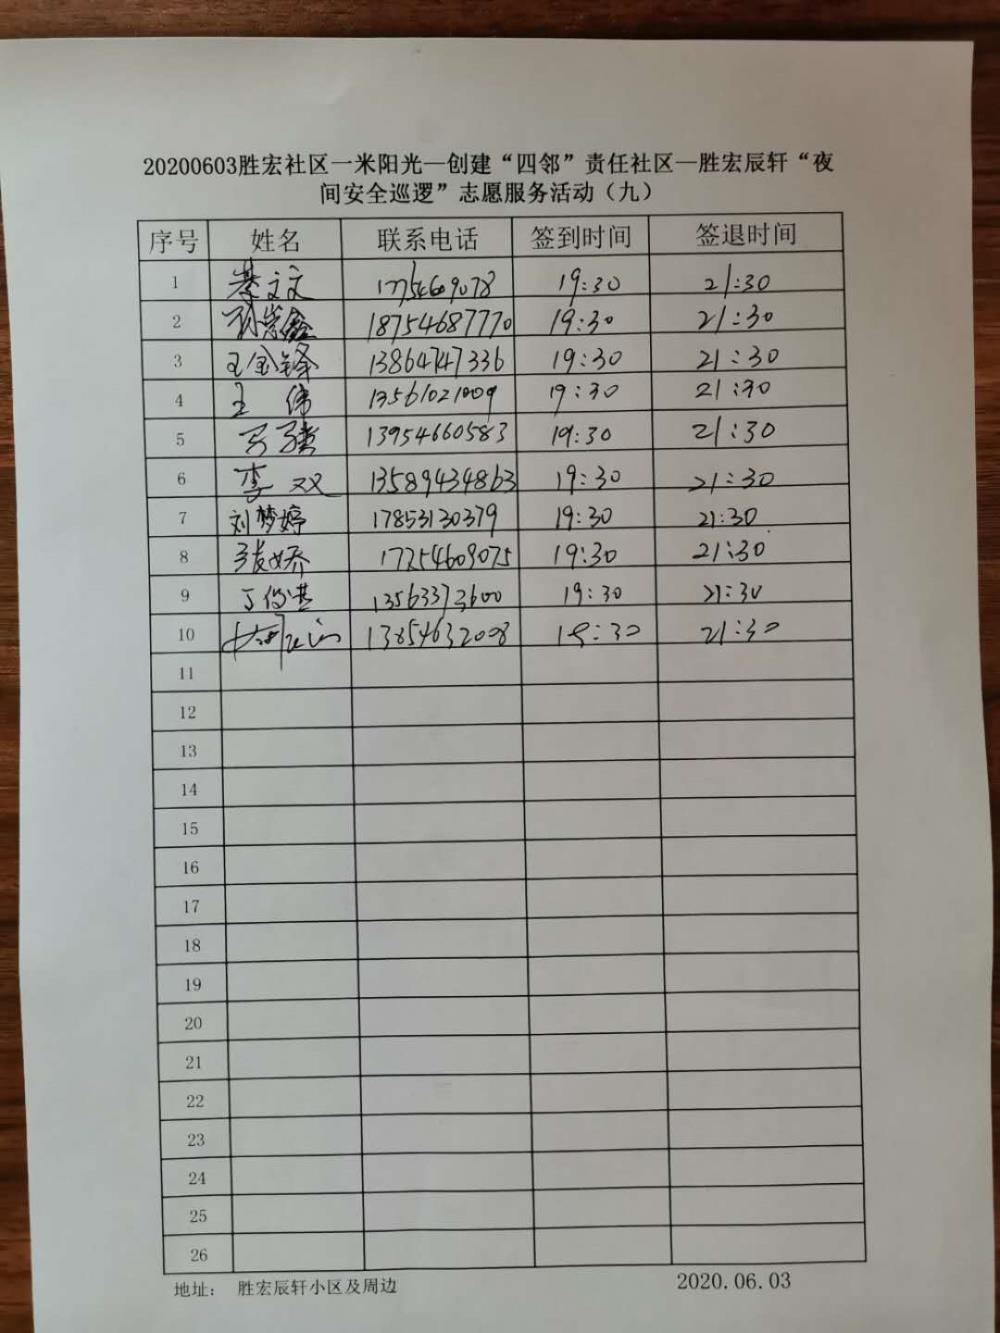 20200603胜宏社区一米阳光—创建“四邻”责任社区—胜宏辰轩“夜
间安全巡逻”志愿服务活动（九）
序号 姓名 联系电话 签到时间 签退时间
1 文文 17754609078 19:30 21:30
2 18754687770 19:30 21:30
3 王金锋 13864747336 19:30 21:30
4 王伟 13561021009 19:30 21:30
5 13954660583 19:30 21:30
6 李双 13589434863 19:30 21:30
7 刘梦婷 17853130379 19:30 21:30
8 张娇 17754609075 19:30 21:30
9 丁 19:30 21:30
10 13854632008 19:30 21:30
11
12
13
14
15
16
17
18
19
20
21
22
23
24
25
26
地址： 胜宏辰轩小区及周边 2020.06.03